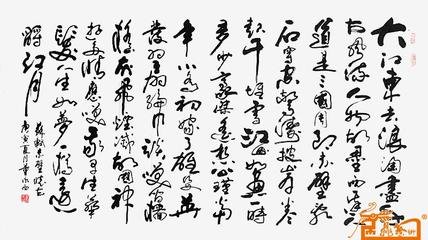 大江東去浪淘盡千
古風流人物故壘西邊人
道是三國周郎赤壁亂
石穿空驚濤拍岸卷
起千堆雪江山如畫一時
多少豪傑遙想公瑾當
年小喬初嫁了雄姿英
發羽扇綸巾談笑間檣
櫓灰飛煙滅故國神
遊多情應笑我早生華
髮人生如夢一樽還
酹江月
蘇軾赤壁懷古
庚寅夏月